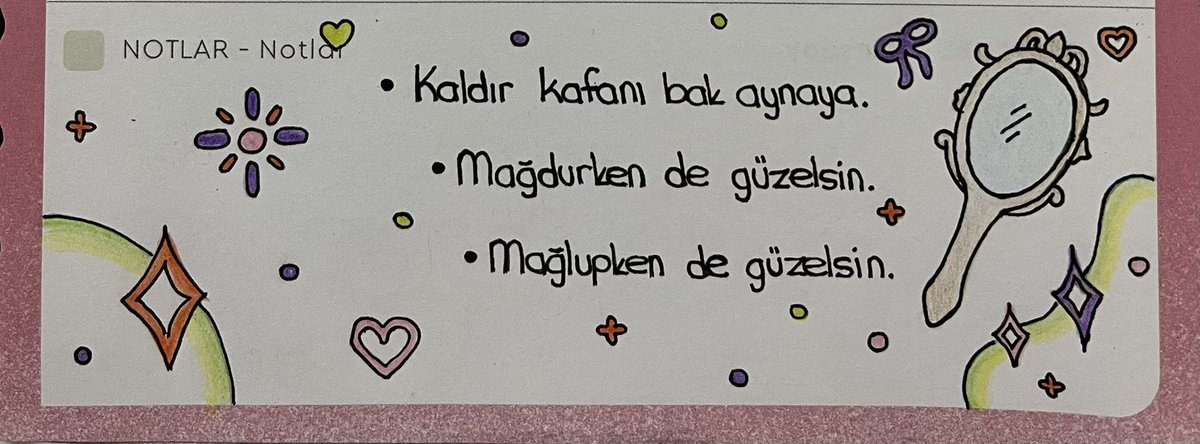 NOTLAR - Notlar
• Kaldır kafanı bak aynaya.
• Mağdurken de güzelsin.
• Mağlupken de güzelsin.